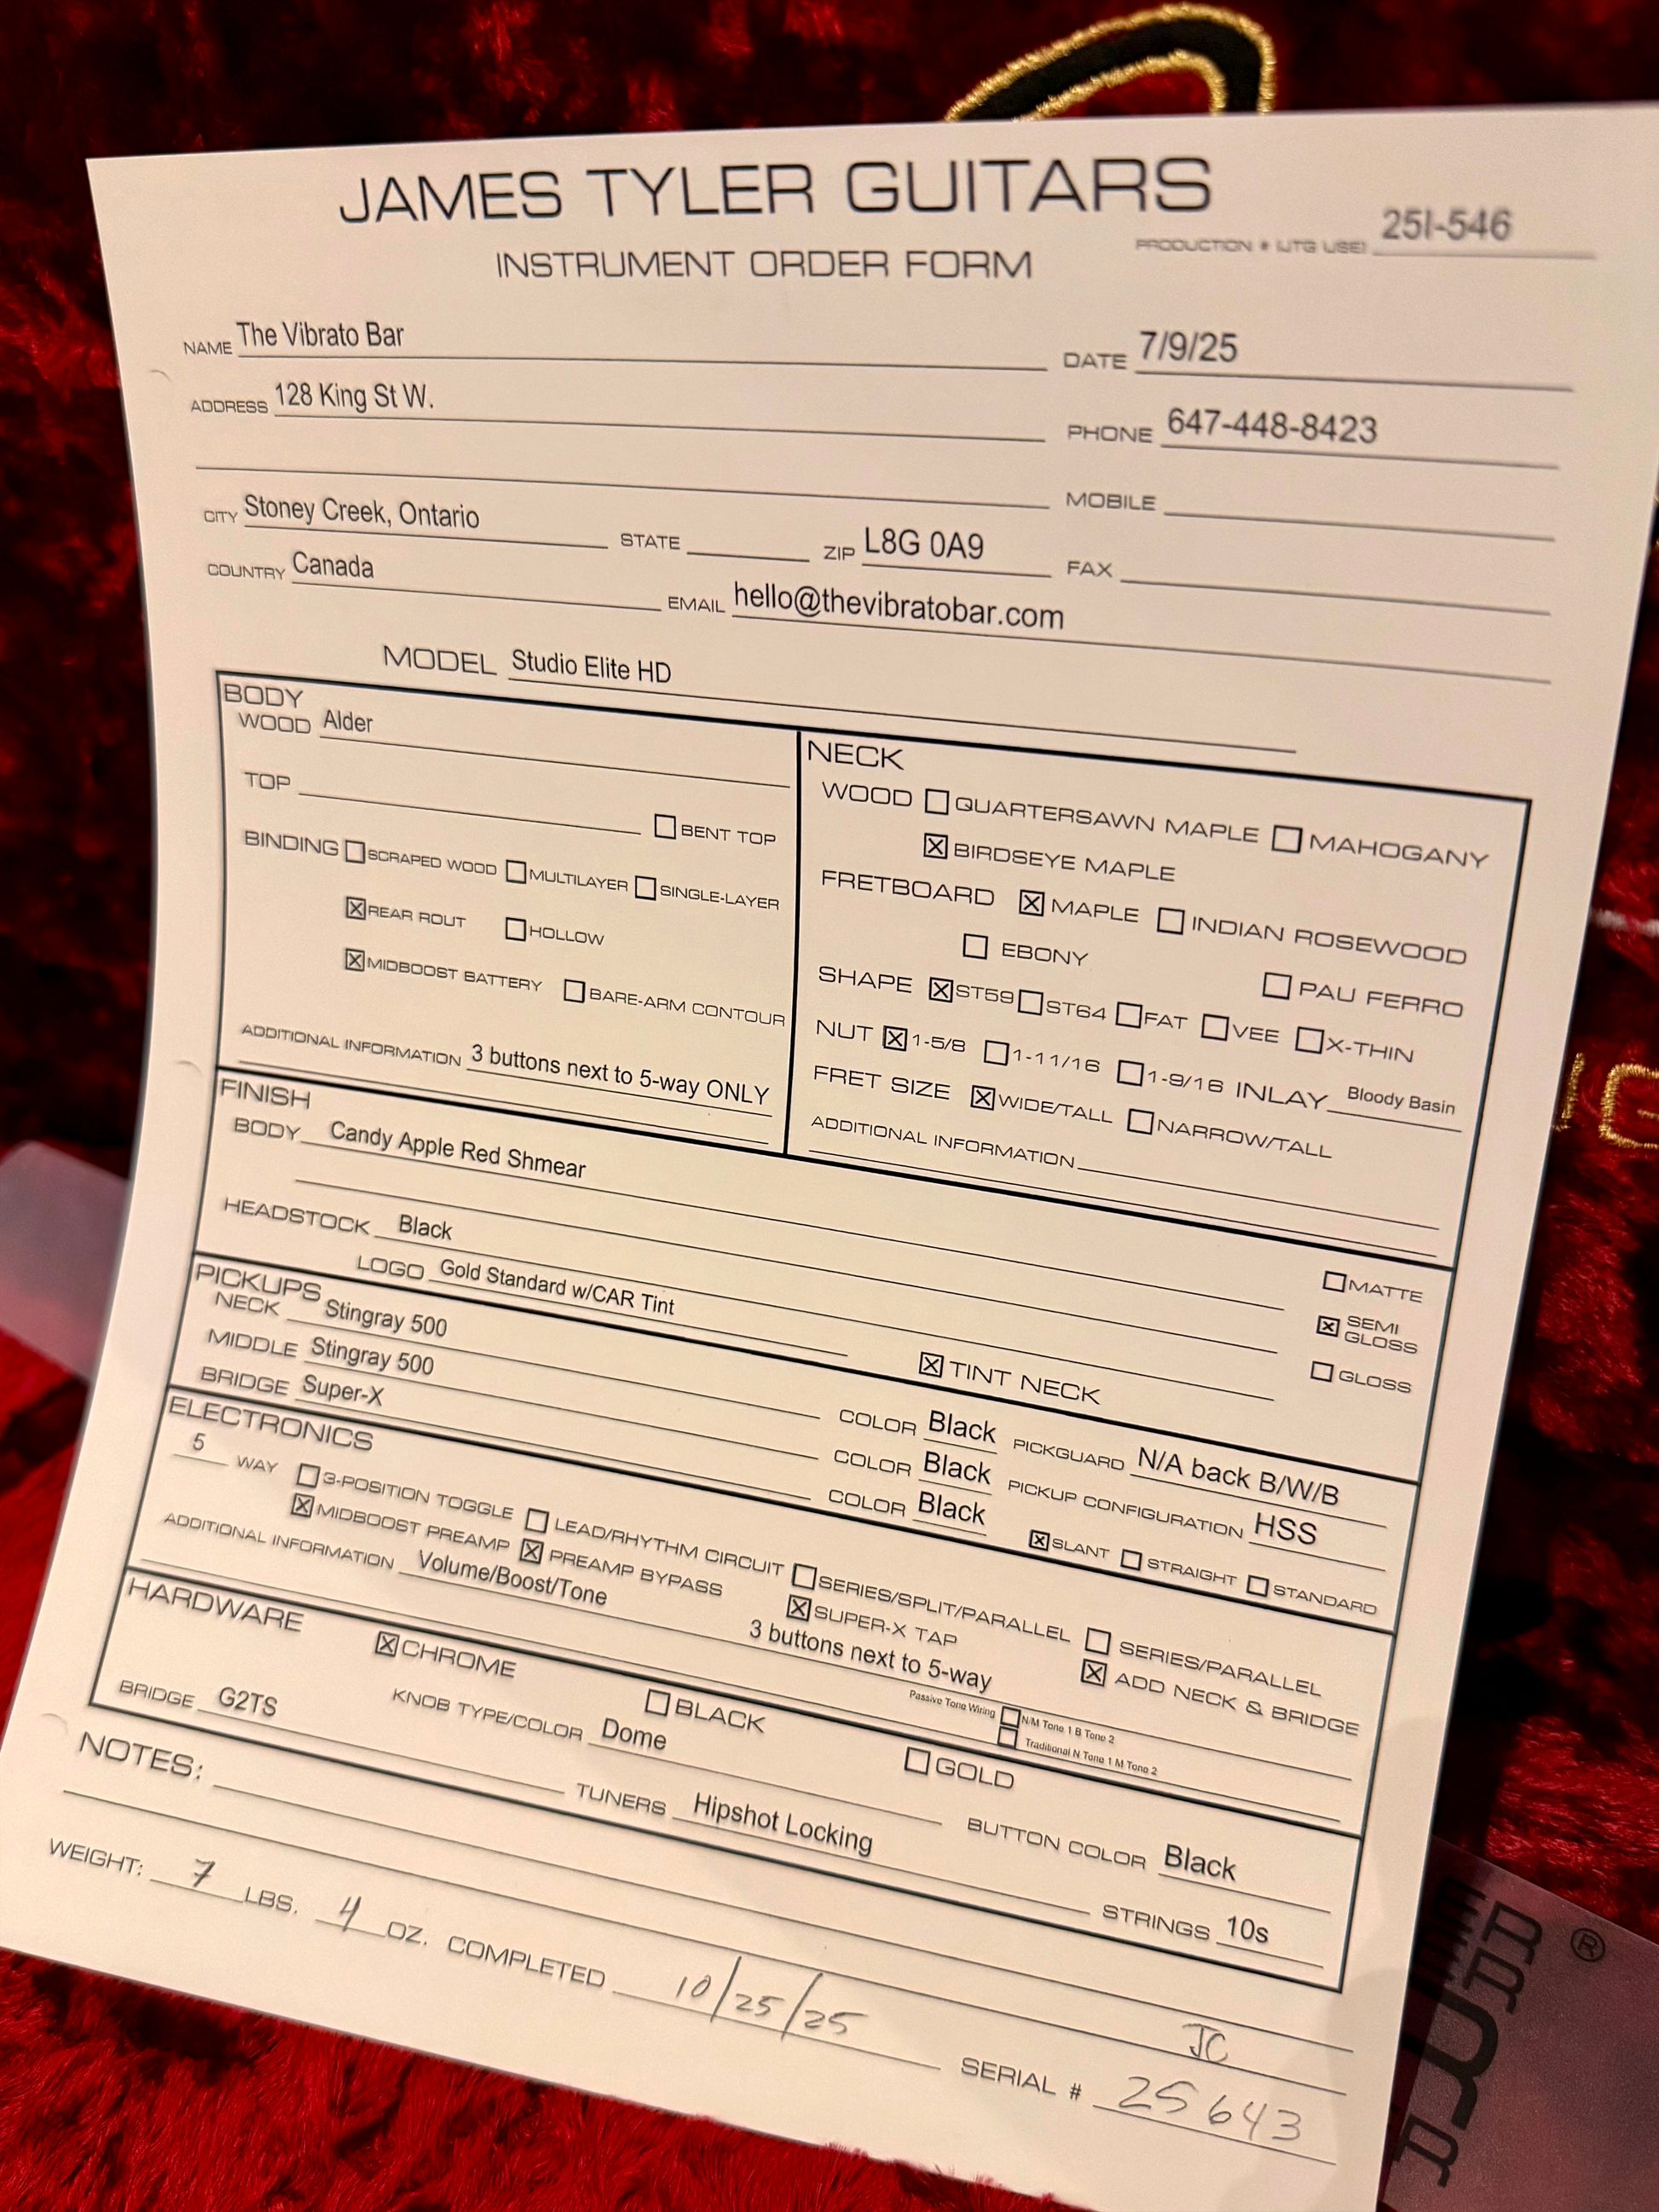 JAMES TYLER GUITARS
INSTRUMENT ORDER FORM
PRODUCTION # (JTG USE) 25I-546
NAME The Vibrato Bar DATE 7/9/25
ADDRESS 128 King St W. PHONE 647-448-8423
MOBILE
CITY Stoney Creek, Ontario STATE ZIP L8G 0A9 FAX
COUNTRY Canada EMAIL hello@thevibratobar.com
MODEL Studio Elite HD
BODY
WOOD Alder
TOP
☐ BENT TOP
BINDING ☐ SCRAPED WOOD ☐ MULTILAYER ☐ SINGLE-LAYER
☒ REAR ROUT ☐ HOLLOW
☒ MIDBOOST BATTERY ☐ BARE-ARM CONTOUR
ADDITIONAL INFORMATION 3 buttons next to 5-way ONLY
NECK
WOOD ☐ QUARTERSAWN MAPLE ☐ MAHOGANY
☒ BIRDSEYE MAPLE
FRETBOARD ☒ MAPLE ☐ INDIAN ROSEWOOD
☐ EBONY ☐ PAU FERRO
SHAPE ☒ ST59 ☐ ST64 ☐ FAT ☐ VEE ☐ X-THIN
NUT ☒ 1-5/8 ☐ 1-11/16 ☐ 1-9/16 INLAY Bloody Basin
FRET SIZE ☒ WIDE/TALL ☐ NARROW/TALL
ADDITIONAL INFORMATION
FINISH
BODY Candy Apple Red Shmear
HEADSTOCK Black
LOGO Gold Standard w/CAR Tint
☒ TINT NECK
☐ MATTE
☒ SEMI GLOSS
☐ GLOSS
PICKUPS
NECK Stingray 500 COLOR Black PICKGUARD N/A back B/W/B
MIDDLE Stingray 500 COLOR Black PICKUP CONFIGURATION HSS
BRIDGE Super-X COLOR Black ☒ SLANT ☐ STRAIGHT ☐ STANDARD
ELECTRONICS
5 WAY ☐ 3-POSITION TOGGLE ☐ LEAD/RHYTHM CIRCUIT ☐ SERIES/SPLIT/PARALLEL ☐ SERIES/PARALLEL
☒ MIDBOOST PREAMP ☒ PREAMP BYPASS ☒ SUPER-X TAP ☒ ADD NECK & BRIDGE
ADDITIONAL INFORMATION Volume/Boost/Tone 3 buttons next to 5-way
Passive Tone Wiring ☐ N/M Tone 1 B Tone 2
☐ Traditional N Tone 1 M Tone 2
HARDWARE
☒ CHROME ☐ BLACK ☐ GOLD
BRIDGE G2TS KNOB TYPE/COLOR Dome BUTTON COLOR Black
TUNERS Hipshot Locking STRINGS 10s
NOTES:
JC
WEIGHT: 7 LBS. 4 OZ. COMPLETED 10/25/25 SERIAL # 25643